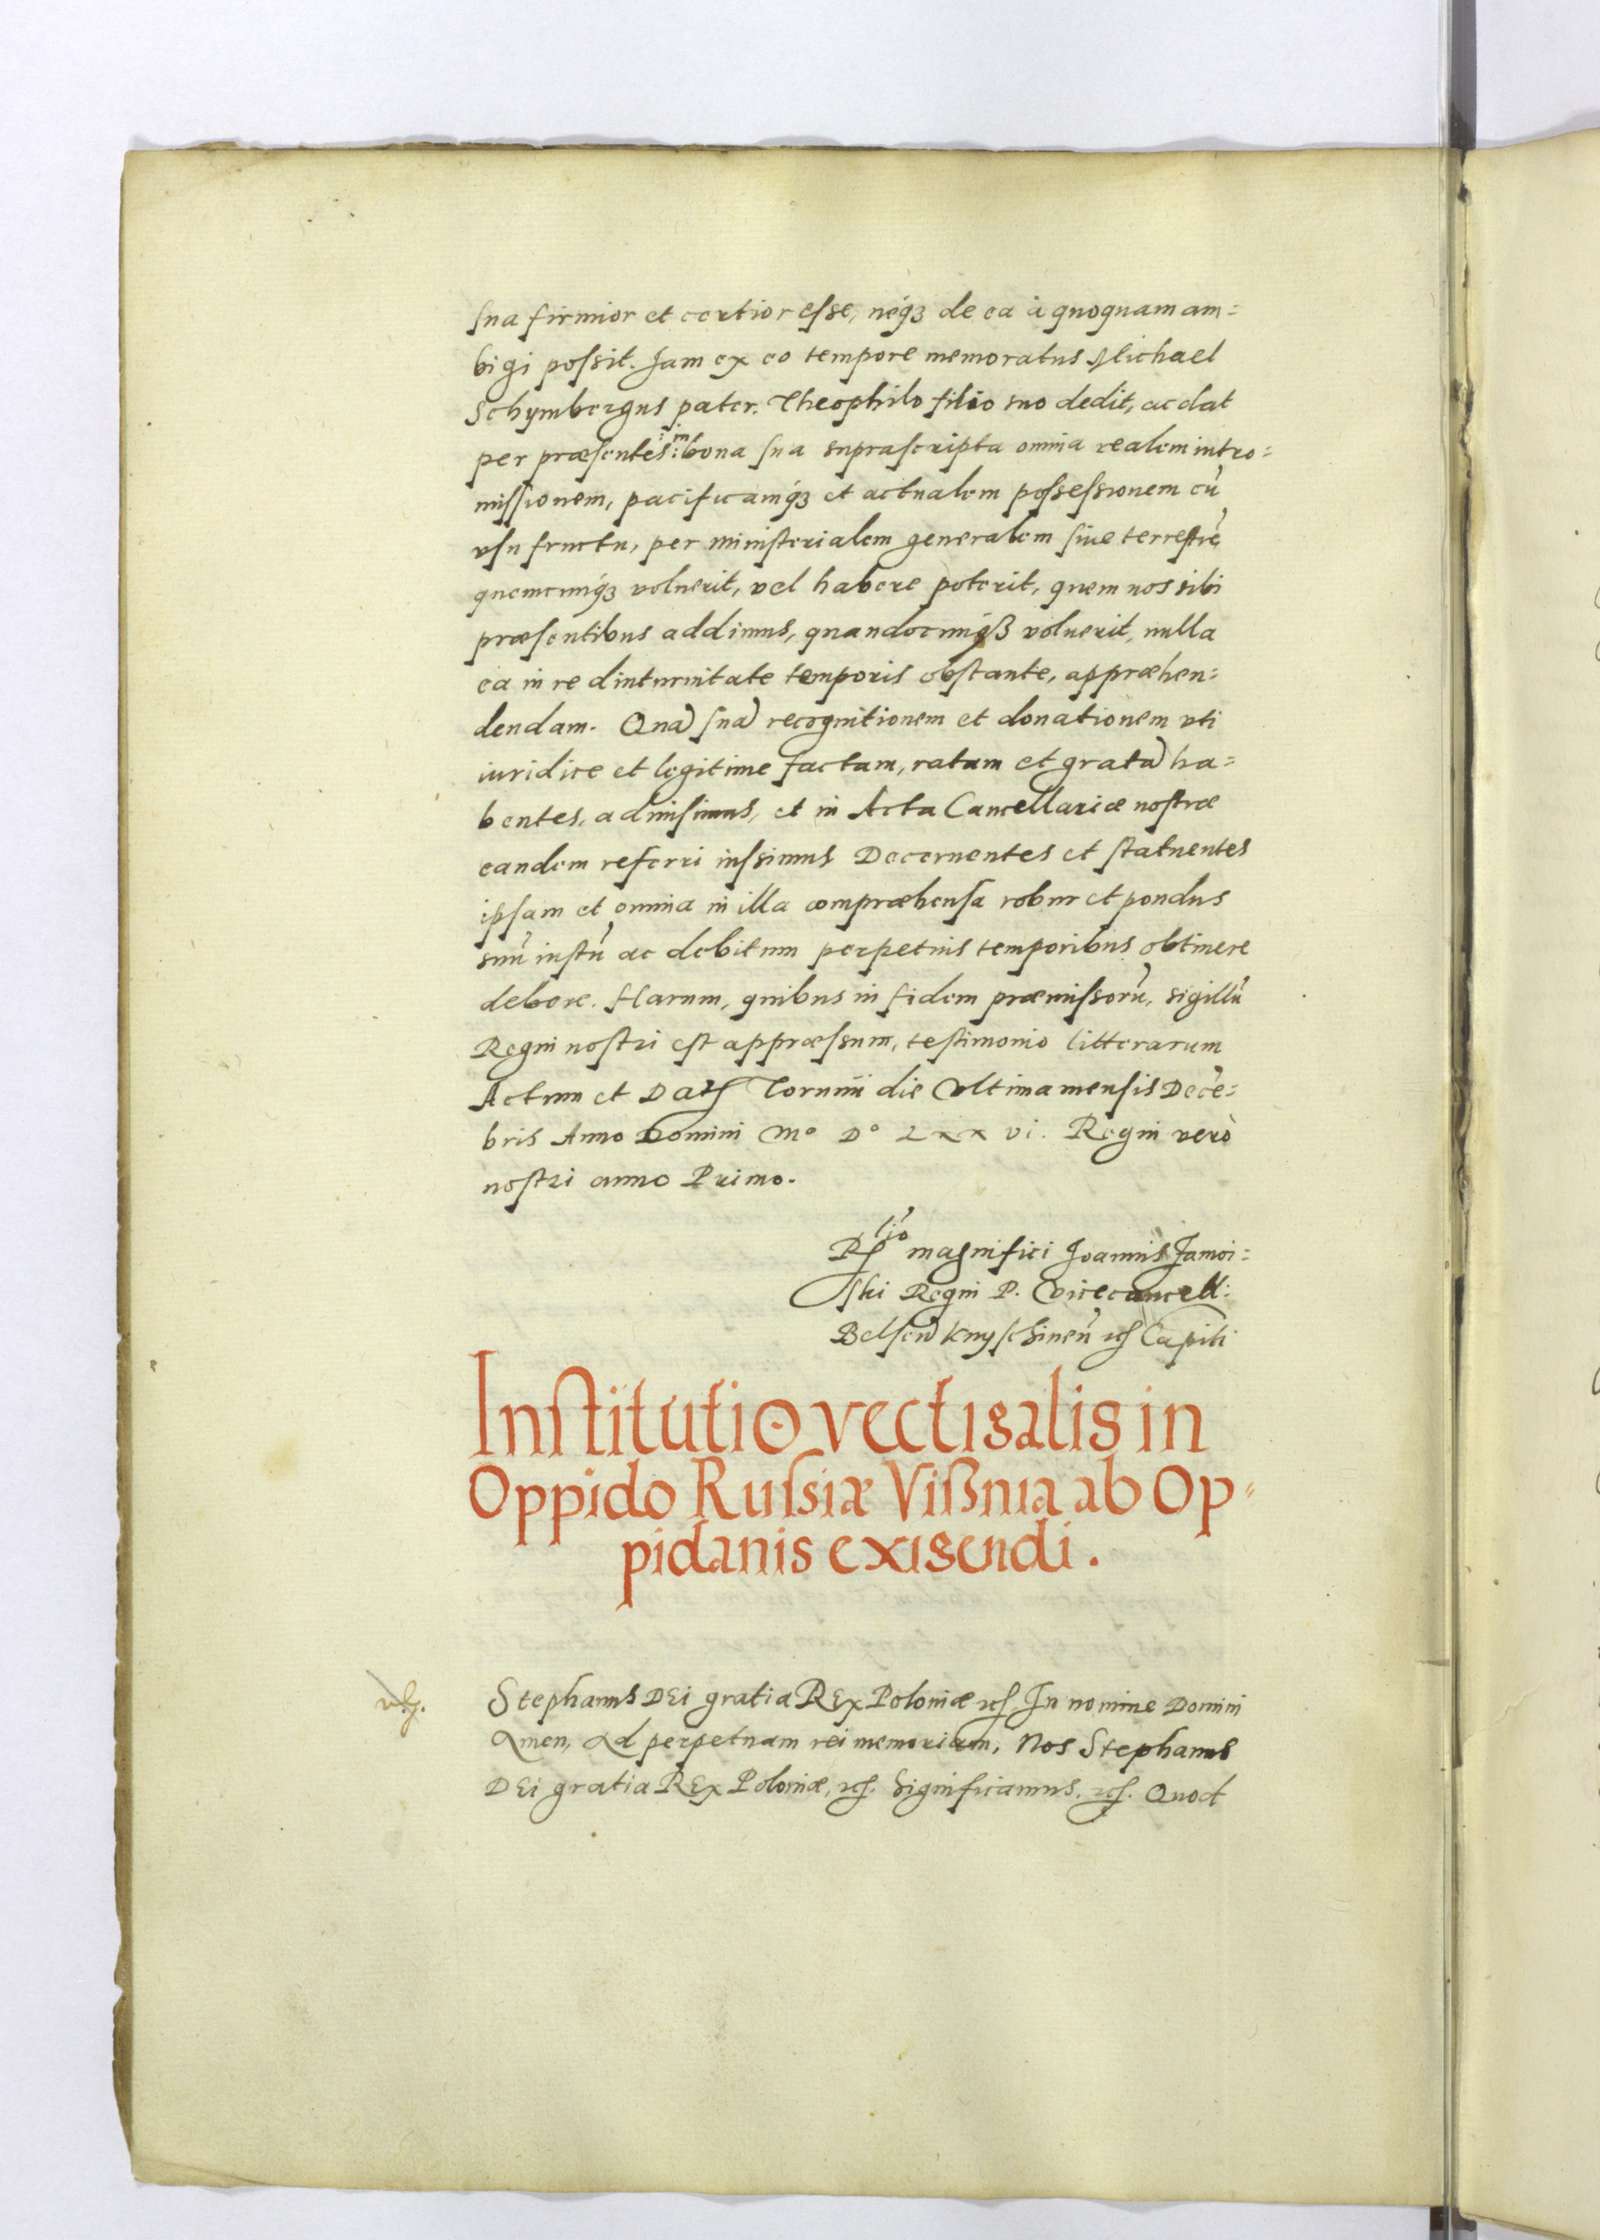 sua firmior et certior esse, neqꝫ de ea à quoquam am=
bigi possit. Jam ex eo tempore memoratus Michael
Schymbergus pater. Theophilo filio suo dedit, ac dat
per præsentes in bona sua suprascripta omnia realem intro=
missionem, pacificamqꝫ et actualem possessionem cū
vsu fructu, per ministerialem generalem siue terrestrē
quemcunqꝫ voluerit, vel habere poterit, quem nos sibi
præsentibus addimus, quandocunqꝫ voluerit, nulla
ea in re diuturnitate temporis obstante, appræhen=
dendam. Quā suā recognitionem et donationem vti
iuridice et legitime factam, ratam et gratā ha=
bentes, admisimus, et in Acta Cancellariæ nostræ
eandem referri iussimus Decernentes et statuentes
ipsam et omnia in illa compræhensa robur et pondus
suū iustū ac debitum perpetuis temporibus obtinere
debere. Harum, quibus in fidem præmissorū, sigillū
Regni nostri est appræssum, testimonio litterarum
Actum et Datʒ Torunii die Vltima mensis Decē=
bris Anno Domini Mº Dº LXXVI. Regni verò
nostri anno Primo.
Rtio magnifici Joannis Zamoi=
ski Regni P. Vicecancell:
Belsen Knyschineñ ꝛc Capiti
Institutio vectigalis in
Oppido Russiæ Vißnia ab Op=
pidanis exigendi.
Stephanus DEi gratia REx Poloniæ ꝛc. In nomine Domini
Amen, Ad perpetuam rei memoriam, Nos Stephanus
DEi gratia REx Poloniæ, ꝛc. Significamus, ꝛc. Quod